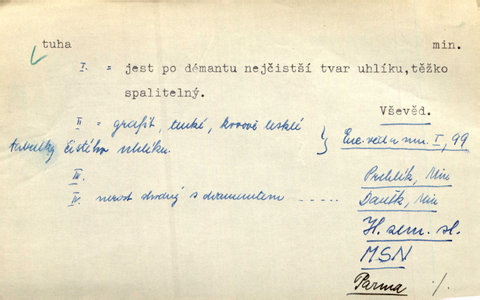 tuha min.
I. = jest po démantu nejčistší tvar uhlíku, těžko
spalitelný.
Vševěd.
II = grafit, tenké, kovově lesklé } Enc. věd a um. I, 99
tabulky čistého uhlíku.
III. Prchlík, Min
IV. nerost shodný s diamantem ..... Daněk, Min
H. sem. sl.
MSN
Parma ./.